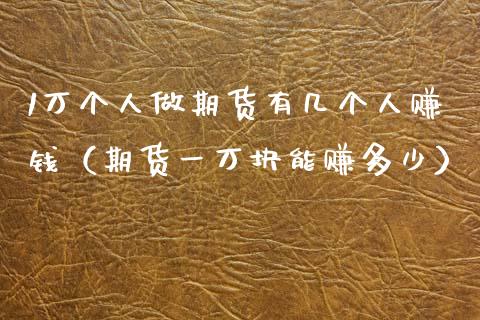 1万个人做期货有几个人赚
钱（期货一万块能赚多少）